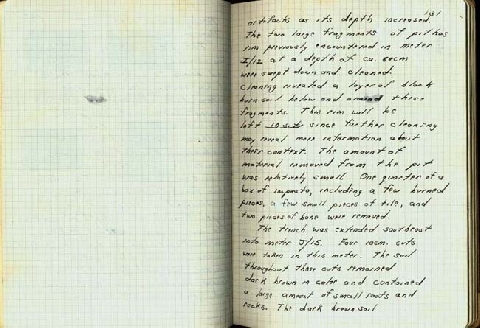 artefacts as its depth increased.
The two large fragments of pithos
rim previously encountered in meter
I/12 at a depth of ca. 60cm
were swept down and cleaned.
Cleaning revealed a layer of black
burn soil below and around these
fragments. This rim will be
left in situ since further cleaning
may reveal more information about
their context. The amount of
material removed from the pit
was relatively small. One quarter of a
box of impasto, including a few burned
pieces, a few small pieces of tile, and
two pieces of bone were removed.
The trench was extended southeast
into meter J/15. Four 10cm. cuts
were taken in this meter. The soil
throughout these cuts remained
dark brown in color and contained
a large amount of small roots and
rocks. The dark brown soil